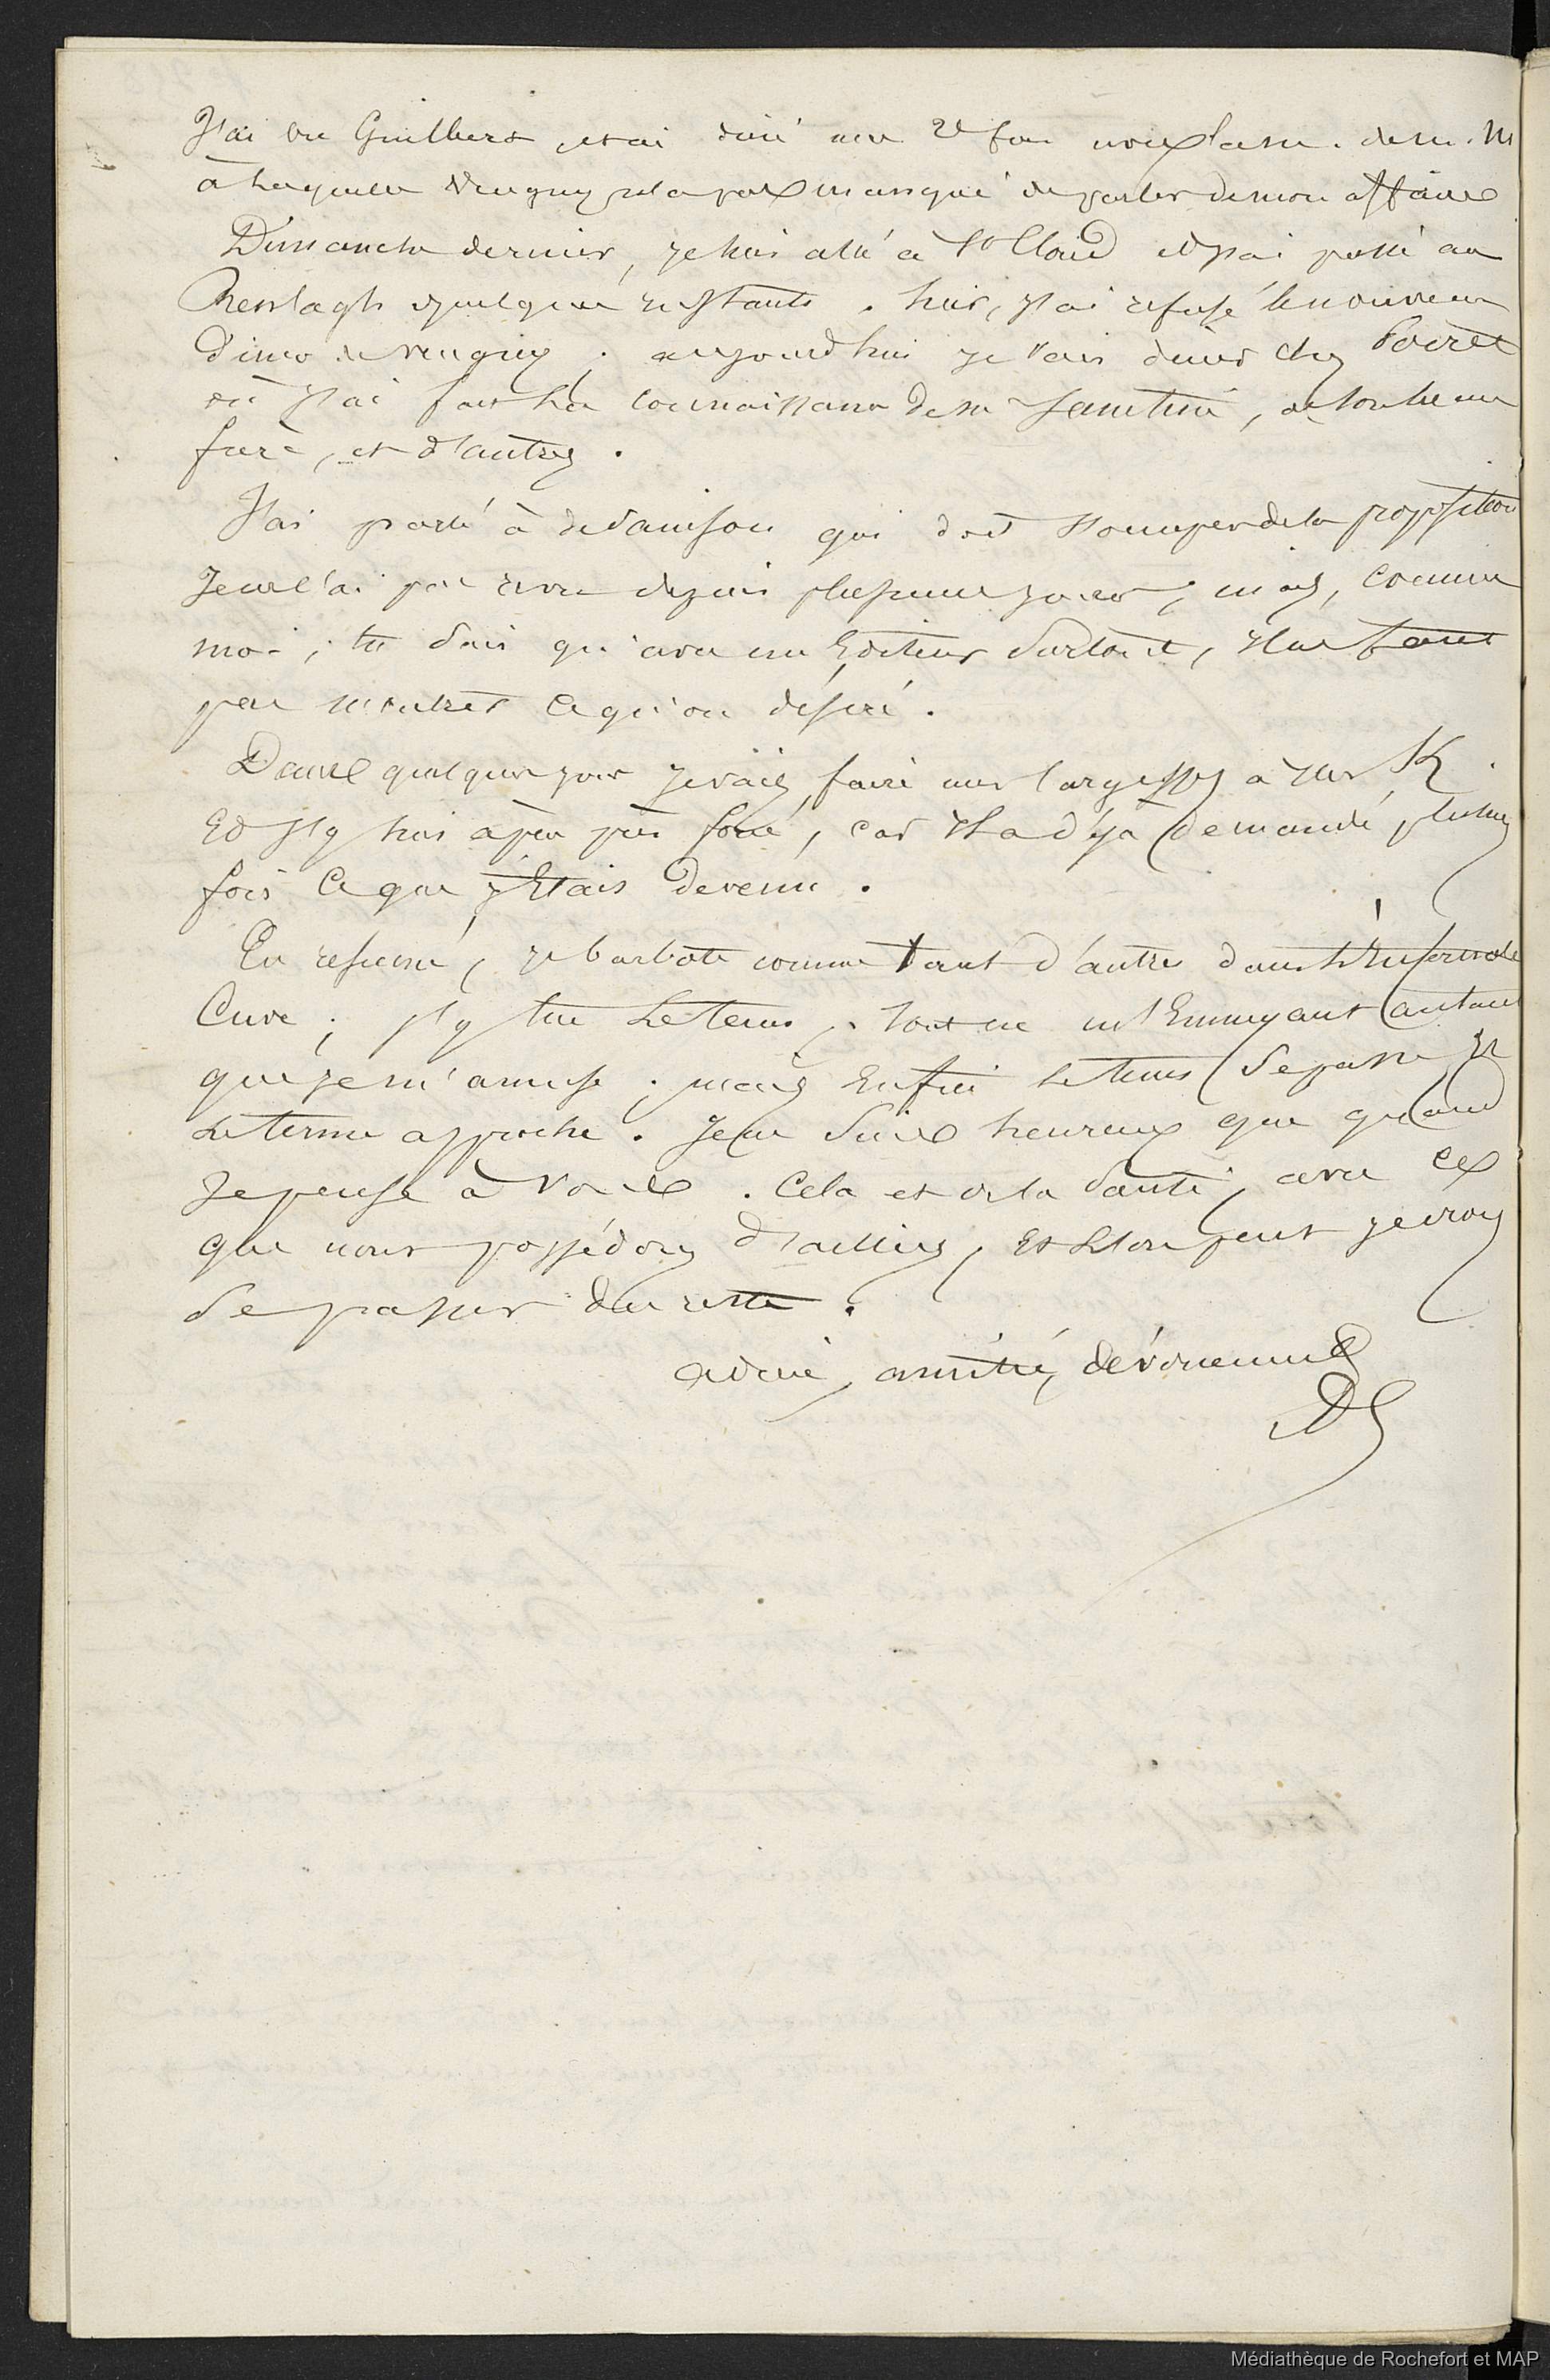 J'ai vu Guilbert et ai diné une 2e fois
à laquelle Vrugny n'a pas manqué de parler de mon affaire
Dimanche dernier, je suis allé à St Cloud et j'ai passé au
Renelagh quelques instants. hier, j'ai refusé le nouveau
diner de Vrugny; aujourd'hui je vais diner chez Poiret
où j'ai fait la connaissance de Mr Saintine, de son beau
frère, et d'autres.
J'ai parlé à qui doit s'occuper de la proposition
Je ne l'ai pas revu depuis plusieurs jours; mais, comme
moi; tu sais qu'avec un Editeur surtout, il ne faut
pas montrer ce qu'on désire.
Dans quelques jours je vais faire mes largesses à Mr K.
Et j'y suis à peu près forcé, car il a déjà demandé plusieurs
fois ce que j'Etais devenu.
En resumé, je barbote comme tant d'autres dans l'Infernale
Cuve; j'y tue le tems, tout en m'Ennuyant autant
que je m'amuse; mais Enfin le tems se passe et
le terme approche. Je ne suis heureux que quand
Je pense à vous. Cela et de la santé, avec ce
que nous possédons d'ailleurs, Et l'on peut je crois
se passer du reste.
adieu, amitié, dévouement